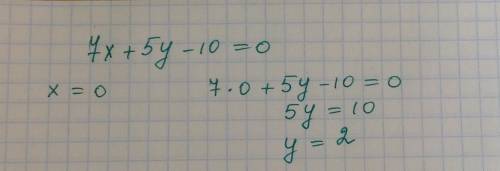 7x + 5y - 10 = 0
x = 0 7 · 0 + 5y - 10 = 0
5y = 10
y = 2